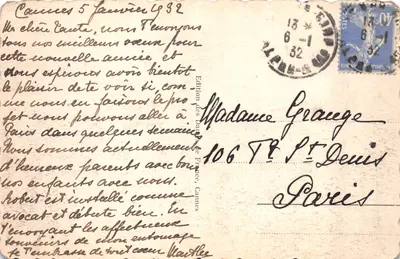 Cannes 5 Janvier 1932
Ma chère Tante, nous t'envoyons
tous nos meilleurs vœux pour
cette nouvelle année, et
nous espérons avoir bientôt
le plaisir de te voir si, com_
me nous en faisons le pro_
jet nous pouvons aller à
Paris dans quelques semaines
Nous sommes actuellement
d'heureux parents avec tous
nos enfants avec nous.
Robert est installé comme
avocat et débute bien. En
t'envoyant les affectueux
souvenirs de mon entourage
je t'embrasse de tout cœur
13
6 -1
32
Madame Grange
106 Tg St Denis
Paris